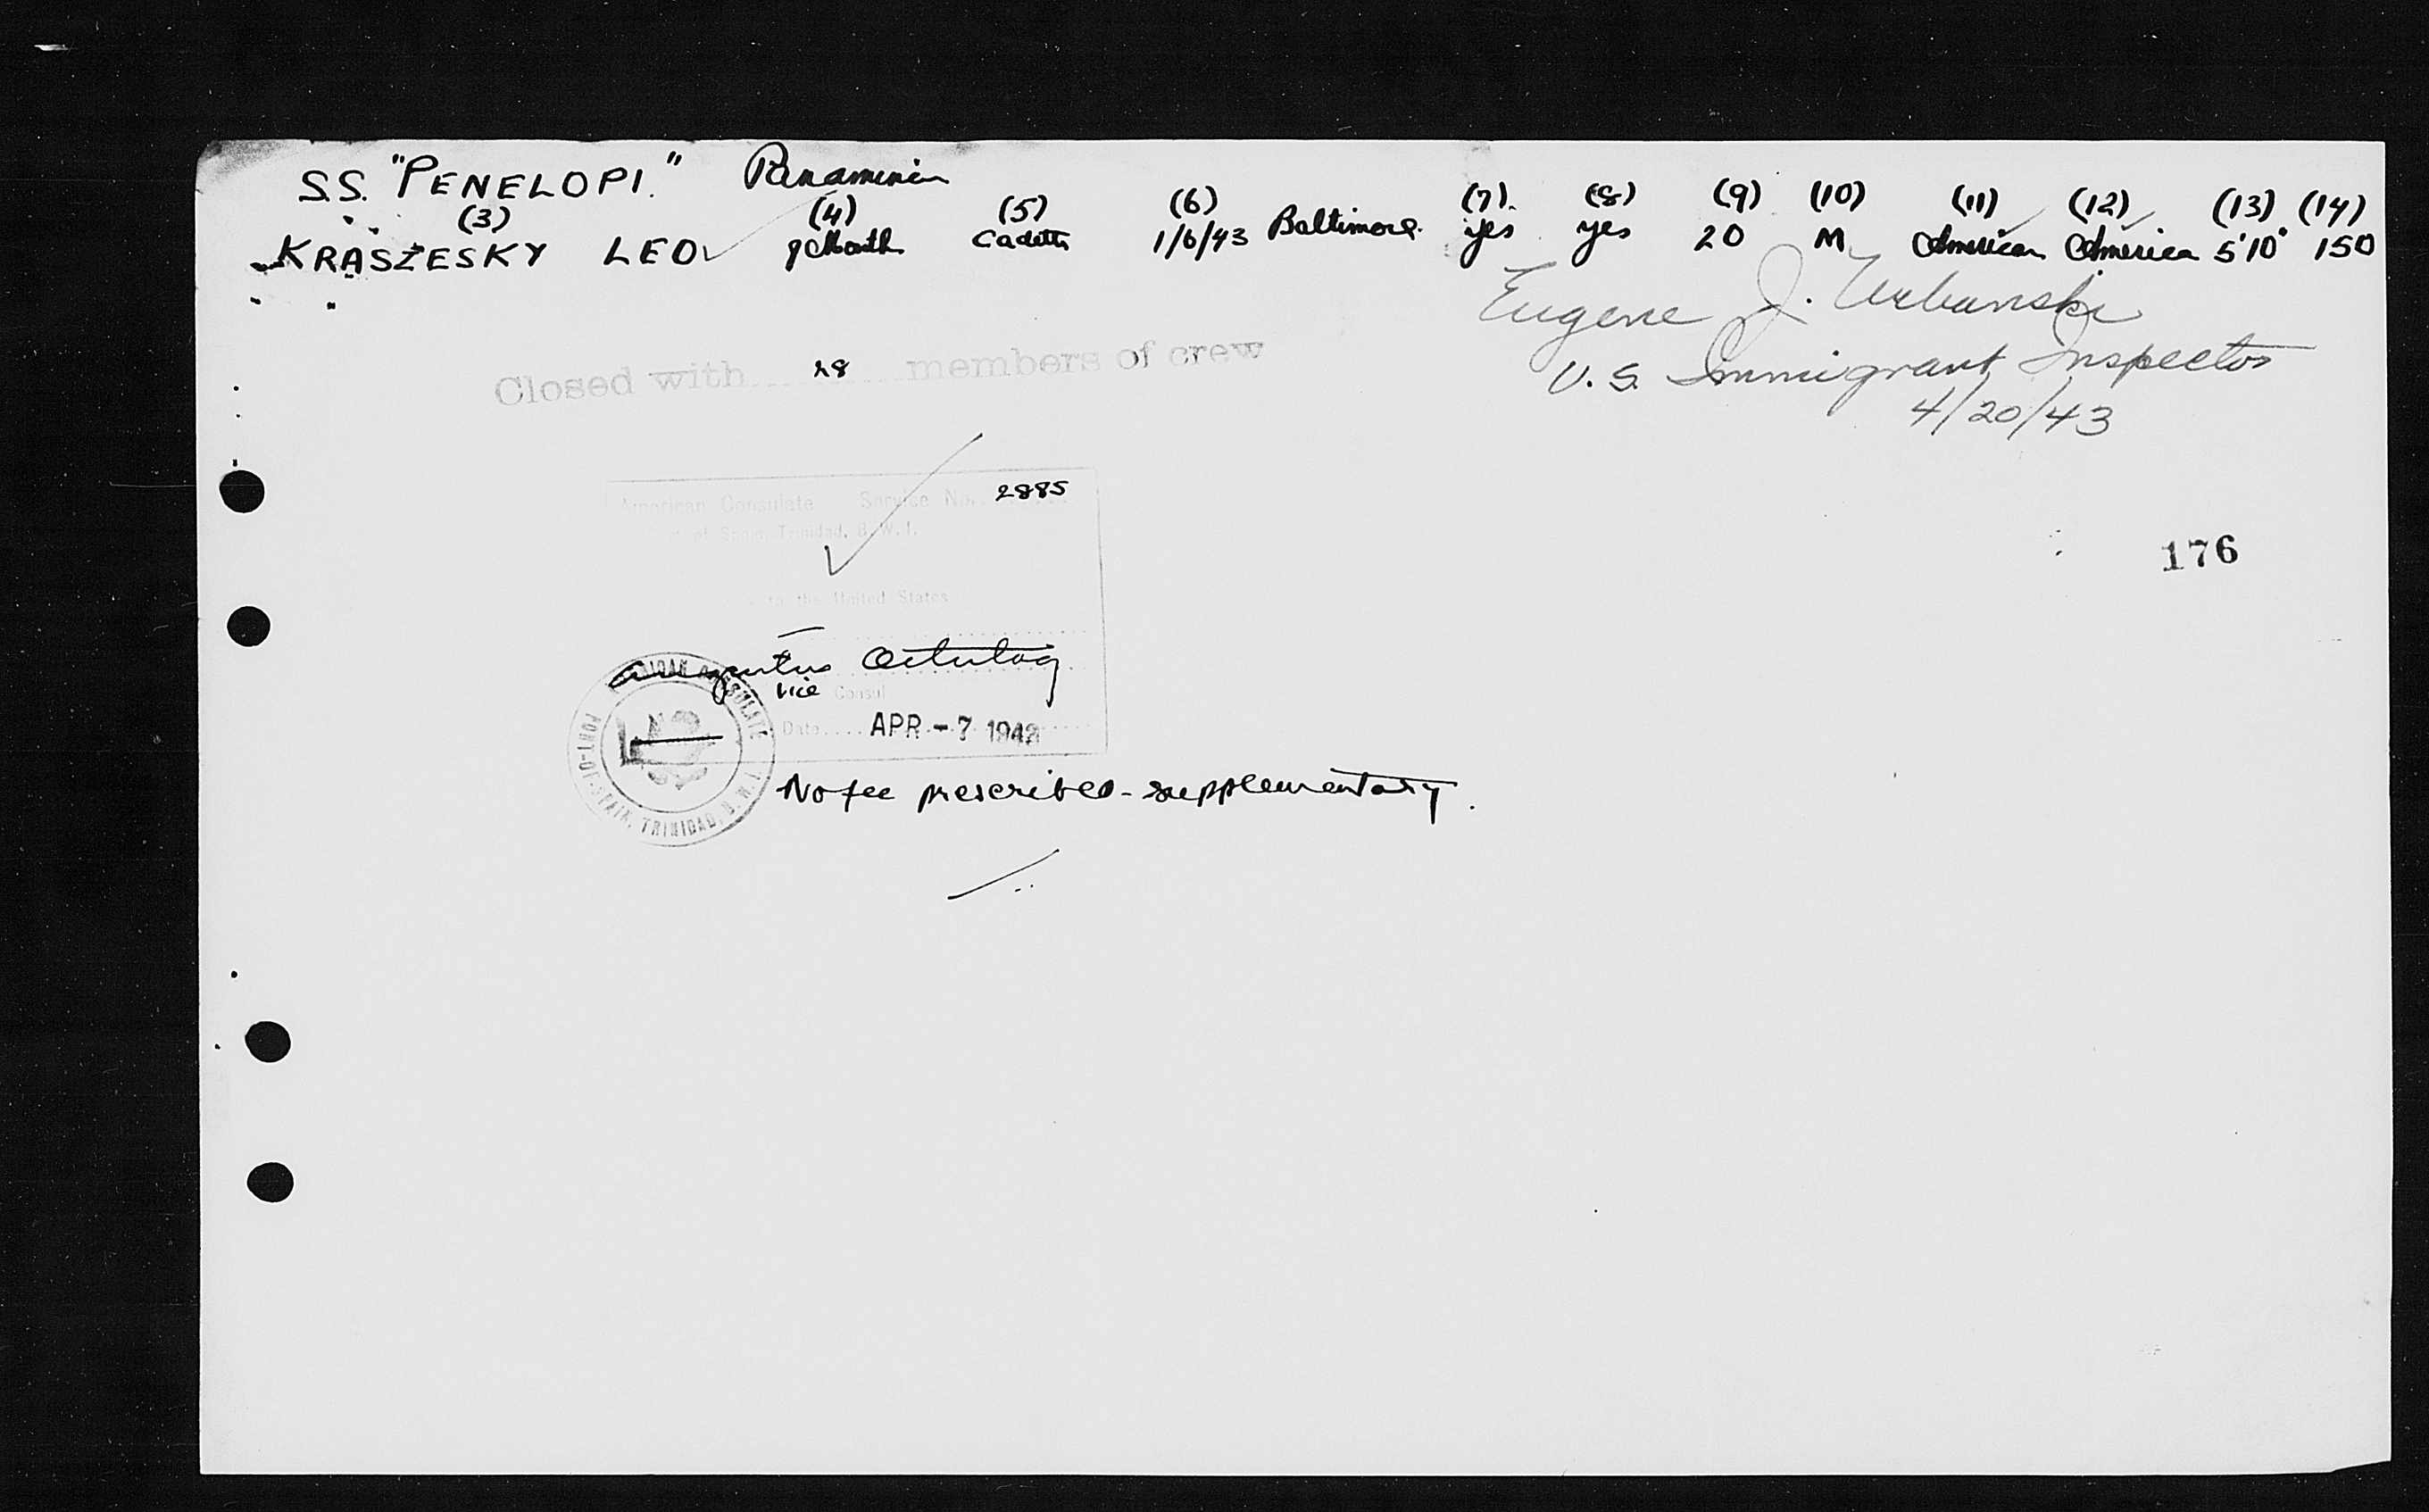 S.S. "PENELOPI." Panamenian
(3) (4) (5) (6) (7). (8) (9) (10) (11) (12) (13) (14)
KRASZESKY LEO Month Cadett 1/6/43 Baltimore. yes yes 20 M American America 5'10" 150
Eugene J. Urbanski
Closed with 28 members of crew
U.S. Immigrant Inspector
4/20/43
American Consulate Service No. 2885
Port of Spain, Trinidad, B.W.I.
176
to the United States
Vice Consul
Date APR - 7 1943
AMERICAN CONSULATE
PORT-OF-SPAIN, TRINIDAD, B.W.I.
No fee prescribed - supplementary.